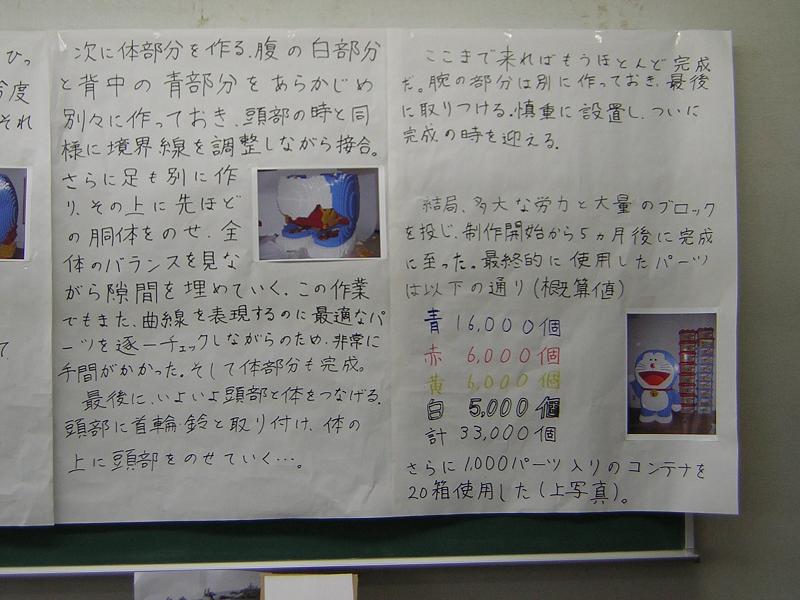 ひっ
今度
それ
て
次に体部分を作る。腹の白部分
と背中の青部分をあらかじめ
別々に作っておき、頭部の時と同
様に境界線を調整しながら接合。
さらに足も別に作
り、その上に先ほど
の胴体をのせ、全
体のバランスを見な
がら隙間を埋めていく。この作業
でもまた、曲線を表現するのに最適なパ
ーツを逐一チェックしながらのため、非常に
手間がかかった。そして体部分も完成。
最後に、いよいよ頭部と体をつなげる。
頭部に首輪・鈴と取り付け、体の
上に頭部をのせていく…。
ここまで来ればもうほとんど完成
だ。腕の部分は別に作っておき、最後
に取りつける。慎重に設置し、ついに
完成の時を迎える。
結局、多大な労力と大量のブロック
を投じ、制作開始から5ヵ月後に完成
に至った。最終的に使用したパーツ
は以下の通り(概算値)
青 16,000個
赤 6,000個
黄 6,000個
白 5,000個
計 33,000個
さらに1,000パーツ入りのコンテナを
20箱使用した(上写真)。